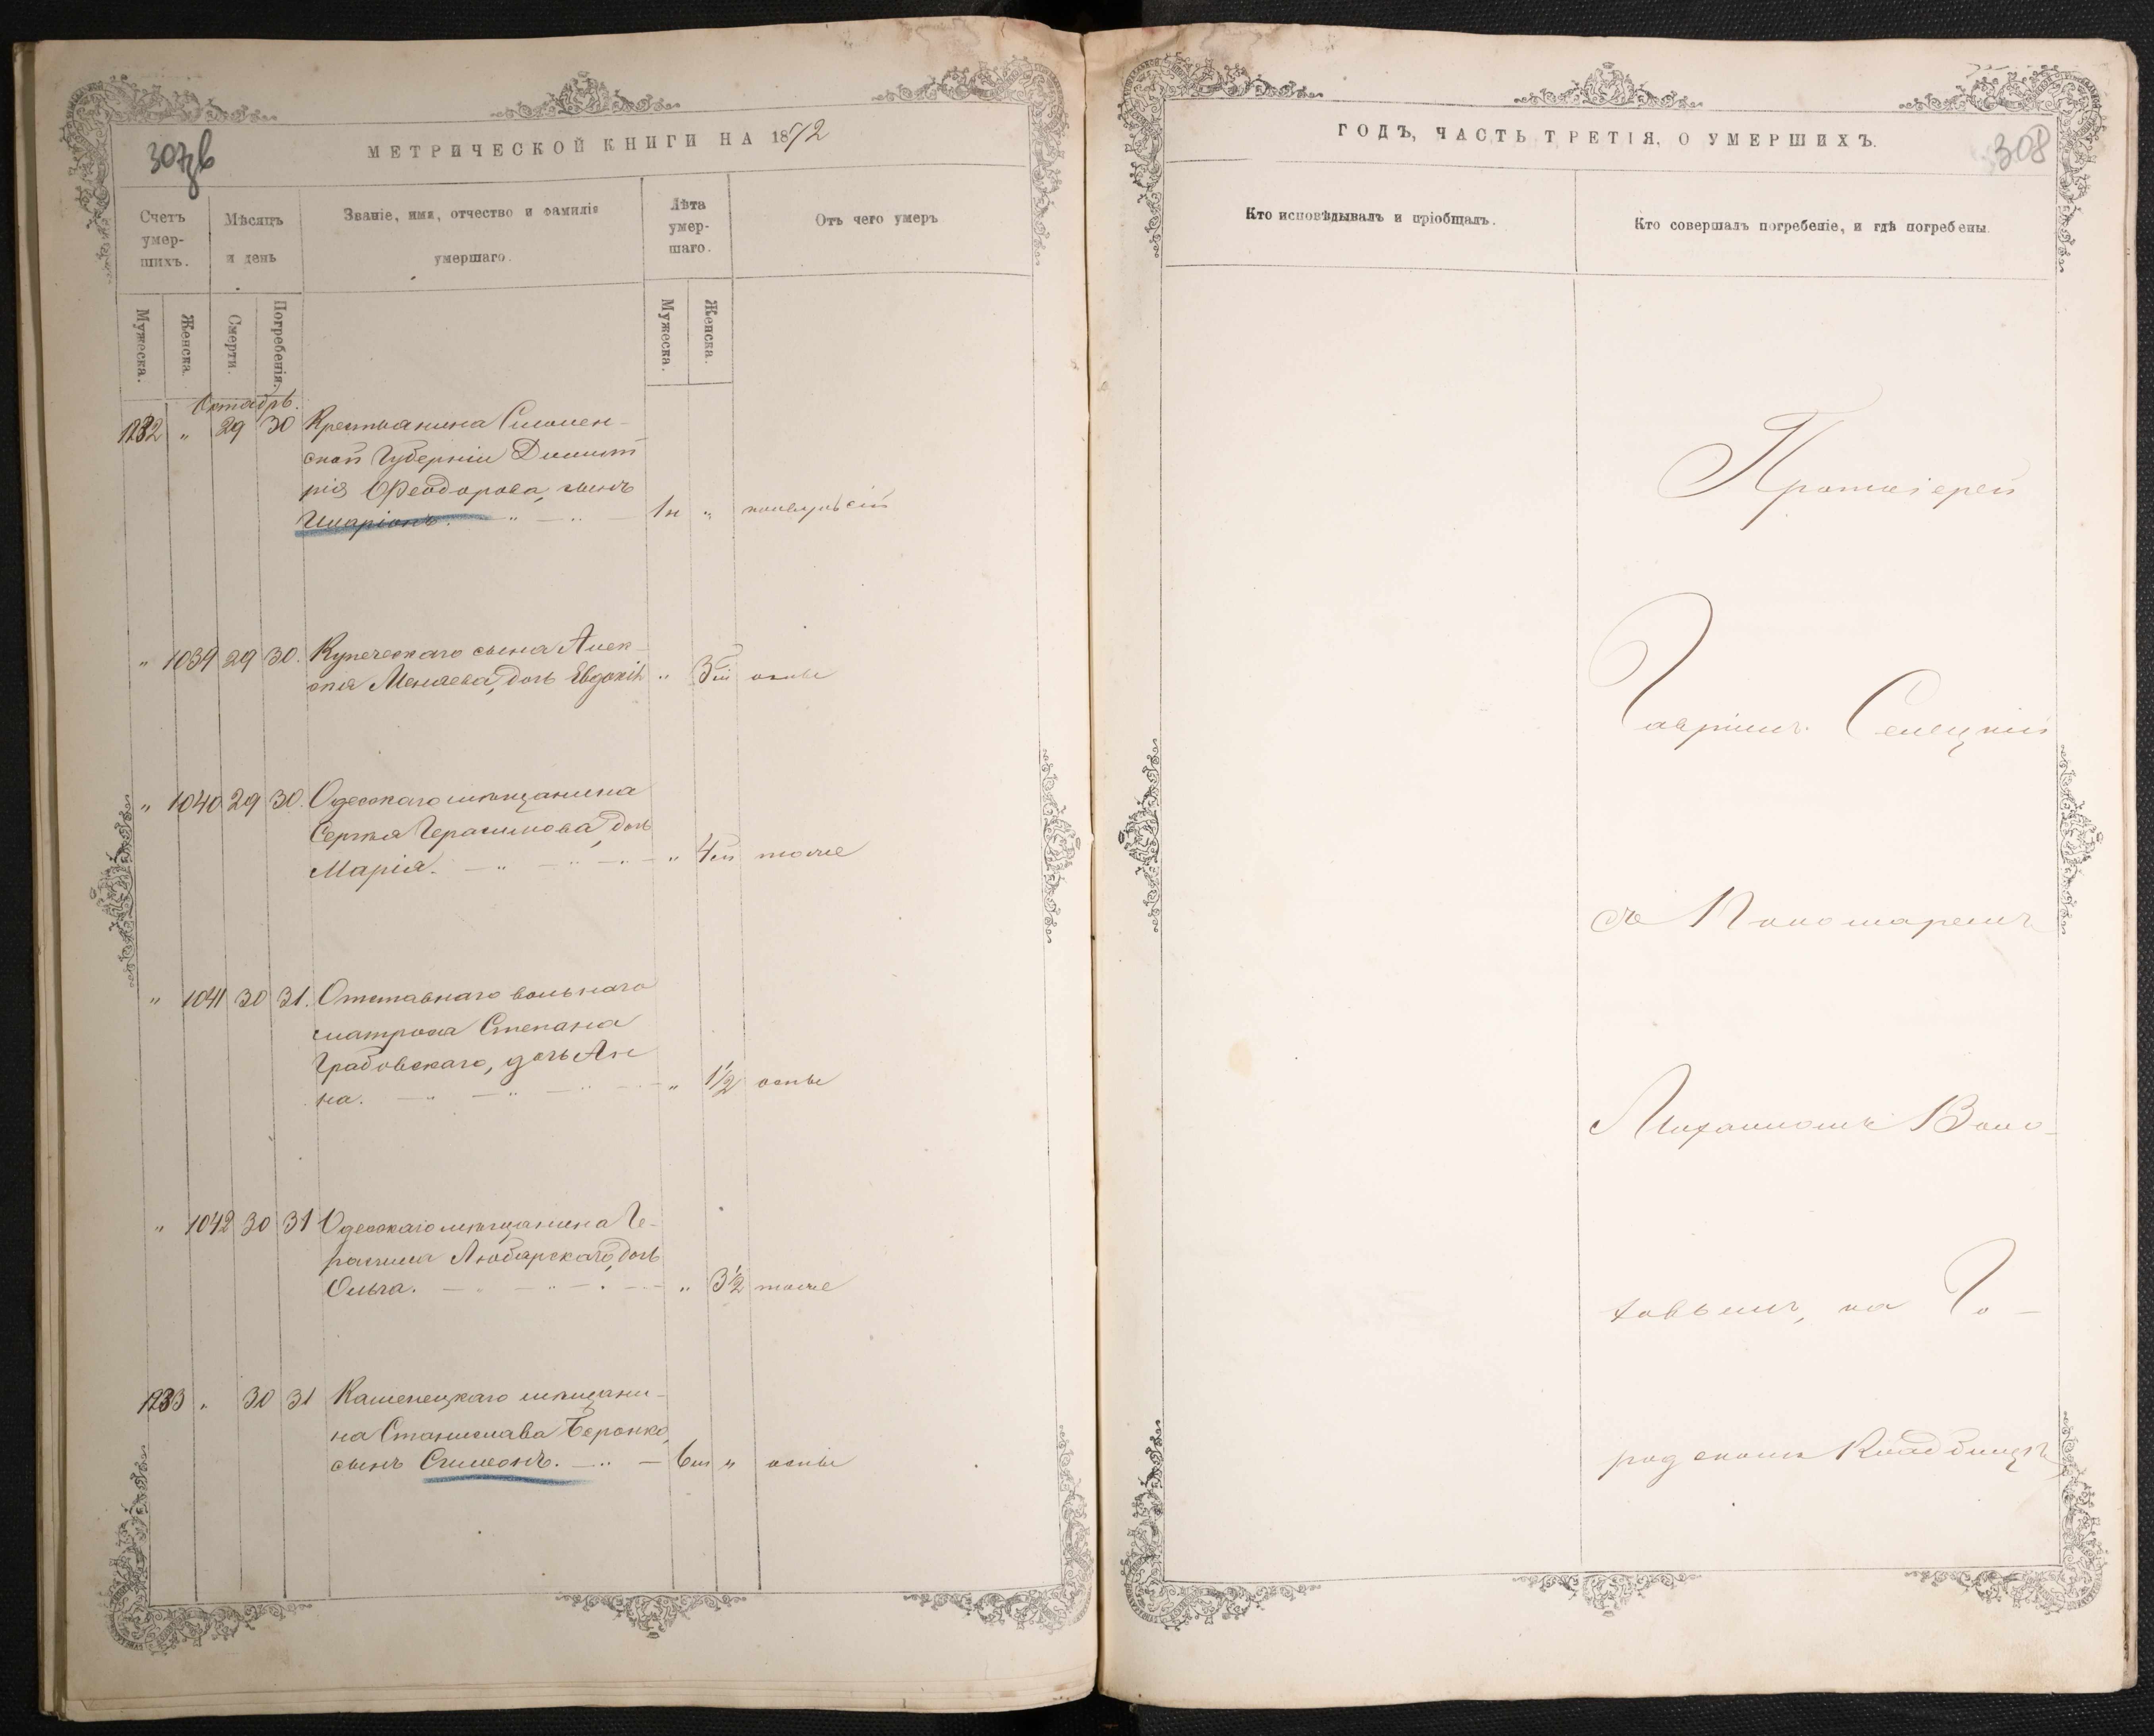 307зв
МЕТРИЧЕСКОЙ КНИГИ НА 1872
Счетъ умер-шихъ.
Мѣсяцъ и день
Званіе, имя, отчество и фамилія умершаго.
Лѣта умер-шаго.
Отъ чего умеръ
Мужеска.
Женска.
Смерти.
Погребенія.
Мужеска.
Женска.
Октябрь.
1232 „ 29 30 Крестьянина Смолен-
ской Губерніи Димит
рія Ѳеодорова, сынъ
Иларіонъ. 1н „
„ 1039 29 30. Купеческаго сына Алек-
сѣя Меняева, дочь Евдокія „ 3 оспы
„ 1040 29 30. Одесскаго мѣщанина
Сергѣя Герасимова, дочь
Марія. „ 4 тоже
„ 1041 30 31. Отставнаго вольнаго
матроса Степана
Грабовскаго, дочь Ан
на. „ 1½ оспы
„ 1042 30 31 Одесскаго мѣщанина Ге-
расима Любарскаго, дочь
Ольга. „ 3½ тоже
1233 „ 30 31 Каменецкаго мѣщани-
на Станислава Беронко,
сынъ Симеонъ. 6м „ оспы
ГОДЪ, ЧАСТЬ ТРЕТІЯ, О УМЕРШИХЪ.
308
Кто исповѣдывалъ и пріобщалъ.
Кто совершалъ погребеніе, и гдѣ погребены.
Протоіерей
Гавріилъ Селецкій
съ Пономаремъ
Михаиломъ Воло-
ховымъ, на Го-
родскомъ Кладбищѣ